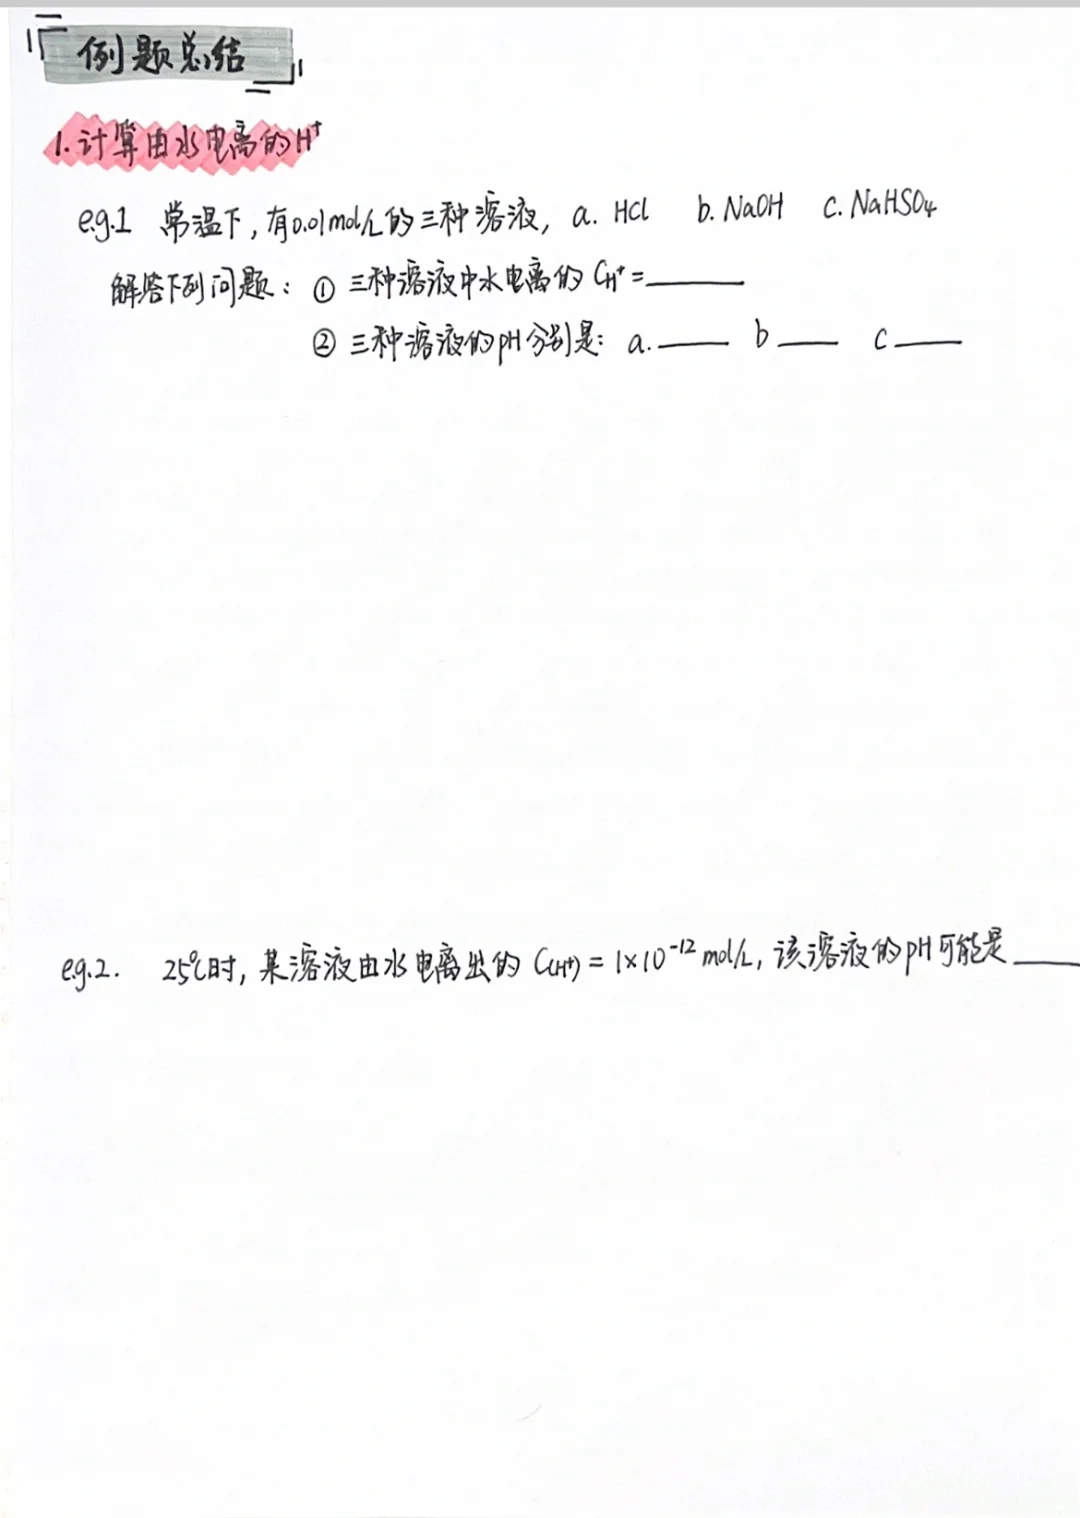 例题总结
1.计算由水电离的H⁺
e.g.1 常温下,有0.01mol/L的三种溶液, a. HCl b. NaOH c. NaHSO₄
解答下列问题: ① 三种溶液中水电离的 C_H⁺=______
② 三种溶液的pH分别是: a.____ b____ c____
e.g.2. 25℃时,某溶液由水电离出的 C(H⁺) = 1×10⁻¹² mol/L, 该溶液的pH可能是____